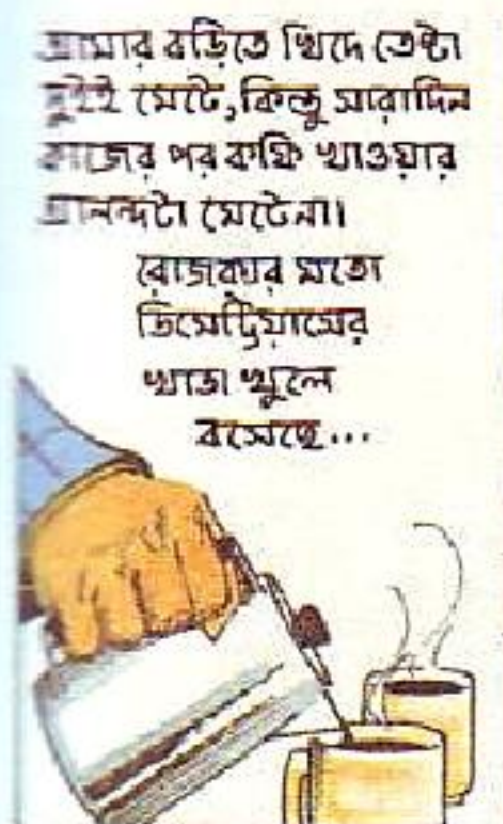 আমার বড়িতে খিদে তেষ্টা
দুইই মেটে, কিন্তু সারাদিন
কাজের পর কফি খাওয়ার
আনন্দটা মেটেনা।
রোজকার মতো
ডিমেট্রিয়াসের
খাতা খুলে
বসেছে...